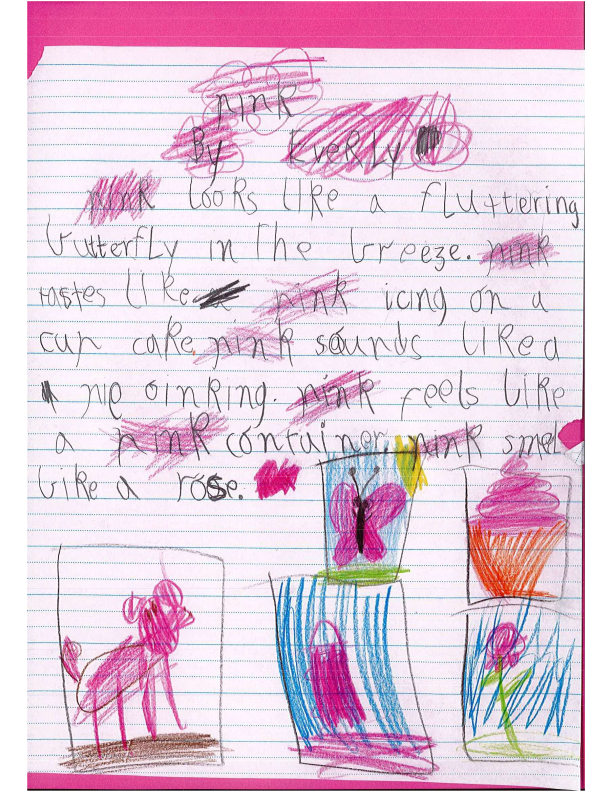 pink
By EverLy
pink looks like a fluttering
butterfly in the breeze. pink
tastes like pink icing on a
cup cake. pink sounds like a
pig oinking. pink feels like
a pink container pink smel
like a rose.